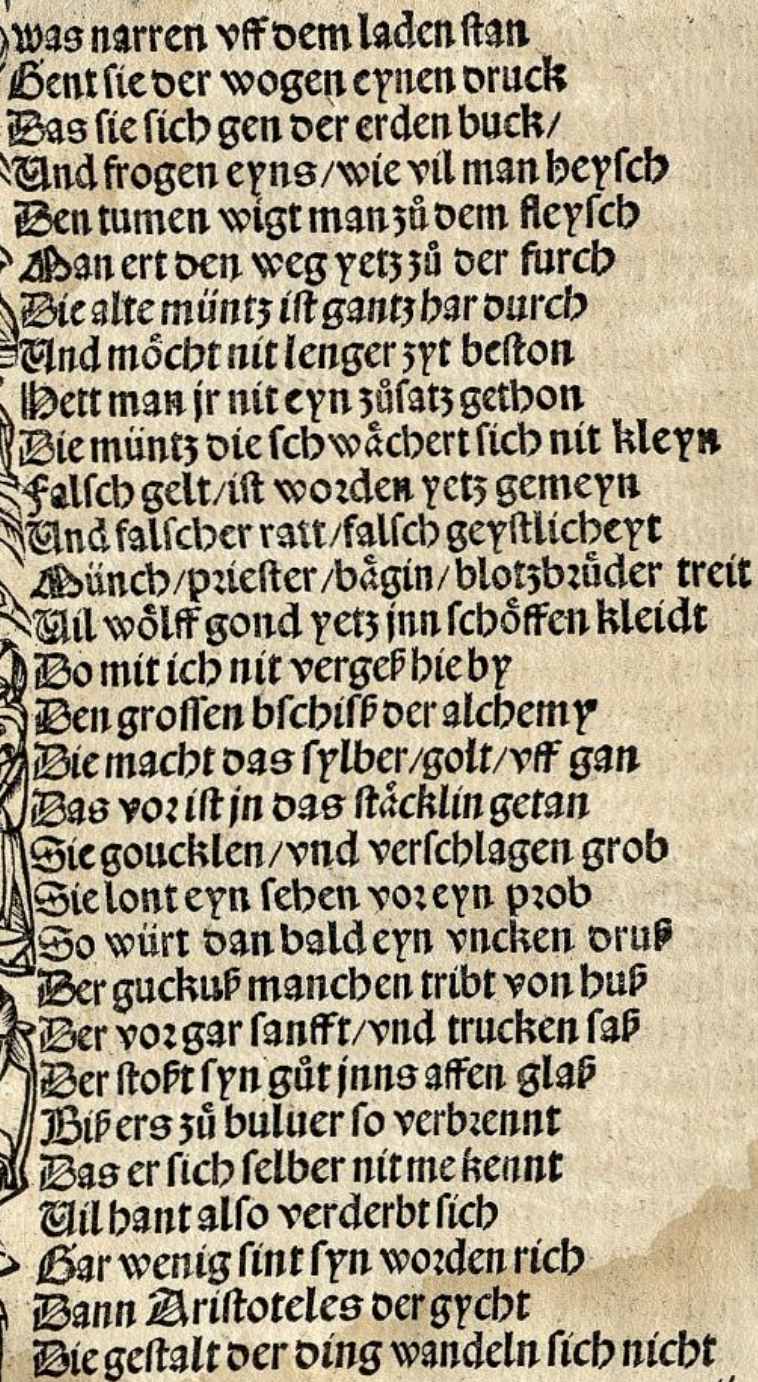 was narren vff dem laden ſtan
Gent ſie der wogen eynen druck
Das ſie ſich gen der erden buck/
Und frogen eyns/wie vil man heyſch
Den tumen wigt man zuͦ dem fleyſch
Man ert den weg yetz zuͦ der furch
Die alte müntz iſt gantz har durch
Und moͤcht nit lenger zyt beſton
Hett man jr nit eyn zuͦſatz gethon
Die müntz die ſchwaͤchert ſich nit kleyn
Falſch gelt/iſt worden yetz gemeyn
Und falſcher ratt/falſch geyſtlicheyt
Münch/prieſter/baͤgin/blotzbruͤder treit
Vil woͤlff gond yetz jnn ſchoͤffen kleidt
Do mit ich nit vergeß hie by
Den groſſen bſchiſß der alchemy
Die macht das ſylber/golt/vff gan
Das vor iſt jn das ſtaͤcklin getan
Sie goucklen/vnd verſchlagen grob
Sie lont eyn ſehen vor eyn prob
So würt dan bald eyn vncken druß
Der guckuß manchen tribt von huß
Der vor gar ſanfft/vnd trucken ſaß
Der ſtoßt ſyn guͦt jnns affen glaß
Biß ers zuͦ buluer ſo verbrennt
Das er ſich ſelber nit me kennt
Vil hant alſo verderbt ſich
Gar wenig ſint ſyn worden rich
Dann Ariſtoteles der gycht
Die geſtalt der ding wandeln ſich nicht